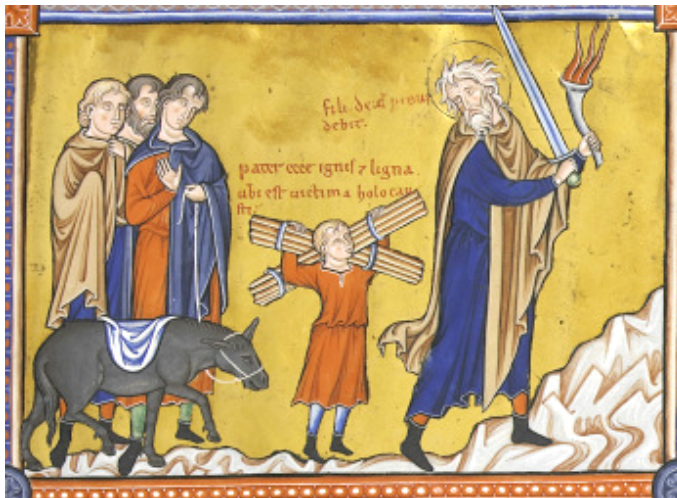 fili deus prouy
debit.
pater ecce ignis ⁊ ligna
ubi est uictima holocau
sti.